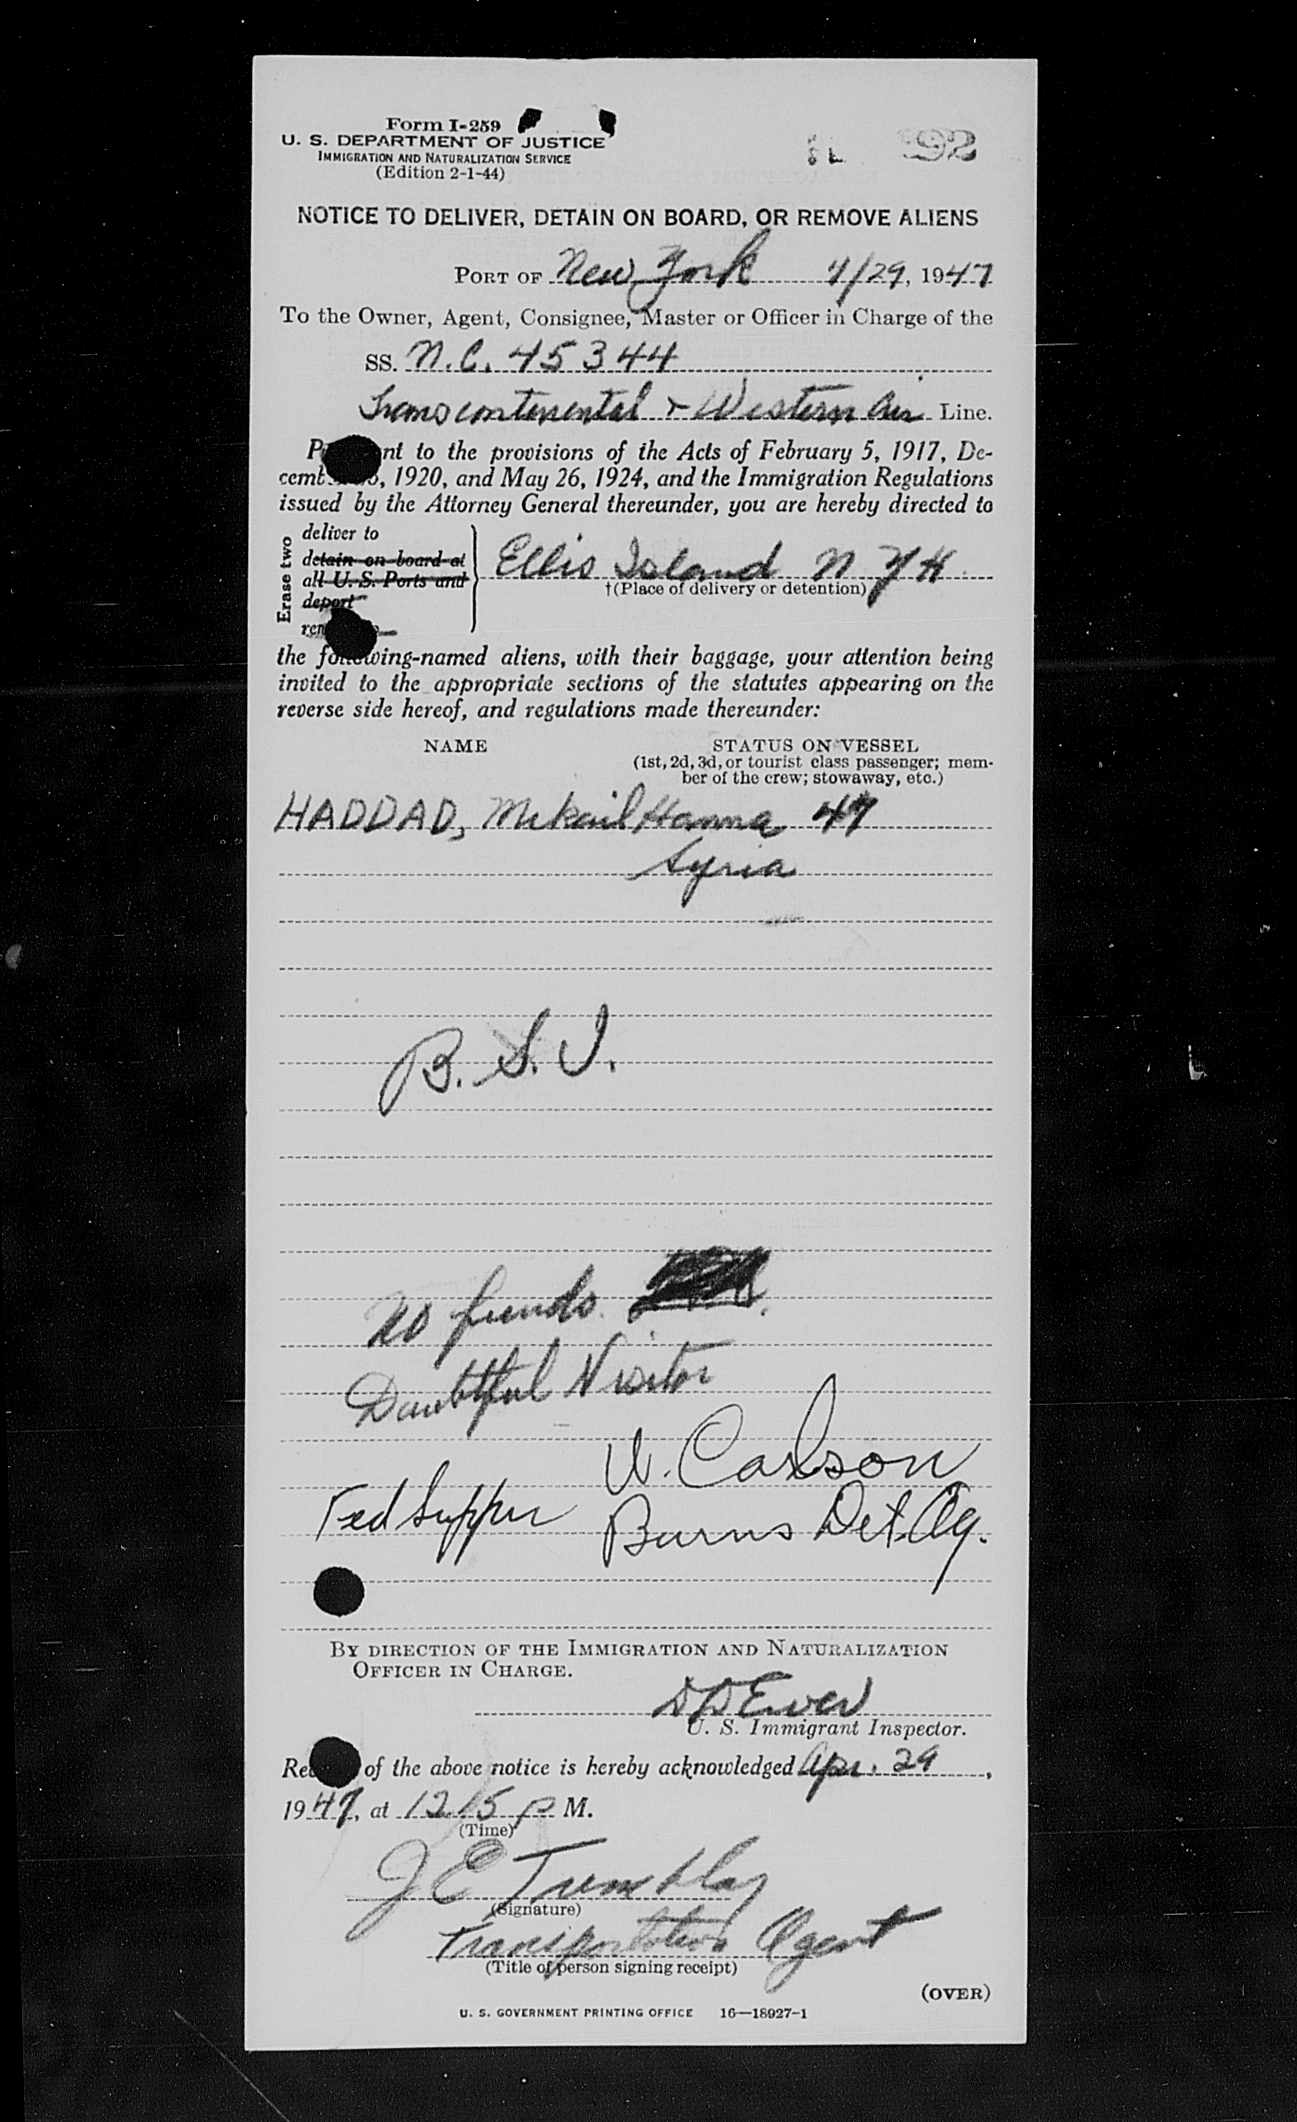 Form I-259
U. S. DEPARTMENT OF JUSTICE
IMMIGRATION AND NATURALIZATION SERVICE
(Edition 2-1-44)
92
NOTICE TO DELIVER, DETAIN ON BOARD, OR REMOVE ALIENS
PORT OF New York 4/29, 1947
To the Owner, Agent, Consignee, Master or Officer in Charge of the
SS. N.C. 45344
Transcontinental & Western Air Line.
nt to the provisions of the Acts of February 5, 1917, De-
cemb , 1920, and May 26, 1924, and the Immigration Regulations
issued by the Attorney General thereunder, you are hereby directed to
Erase two
deliver to
detain on board at
all U. S. Ports and
deport
Ellis Island N Y H
†(Place of delivery or detention)
the following-named aliens, with their baggage, your attention being
invited to the appropriate sections of the statutes appearing on the
reverse side hereof, and regulations made thereunder:
NAME STATUS ON VESSEL
(1st, 2d, 3d, or tourist class passenger; mem-
ber of the crew; stowaway, etc.)
HADDAD, Mikail Hanna 47
Syria
B. S. I.
No funds.
Doubtful Visitor
W. Carlson
Ted Supper Burns Det. Ag.
BY DIRECTION OF THE IMMIGRATION AND NATURALIZATION
OFFICER IN CHARGE.
U. S. Immigrant Inspector.
of the above notice is hereby acknowledged Apr. 29,
1947, at 12 15 P M.
(Time)
J E Tremblay
(Signature)
Transportation Agent
(Title of person signing receipt)
(OVER)
U. S. GOVERNMENT PRINTING OFFICE 16—18927-1